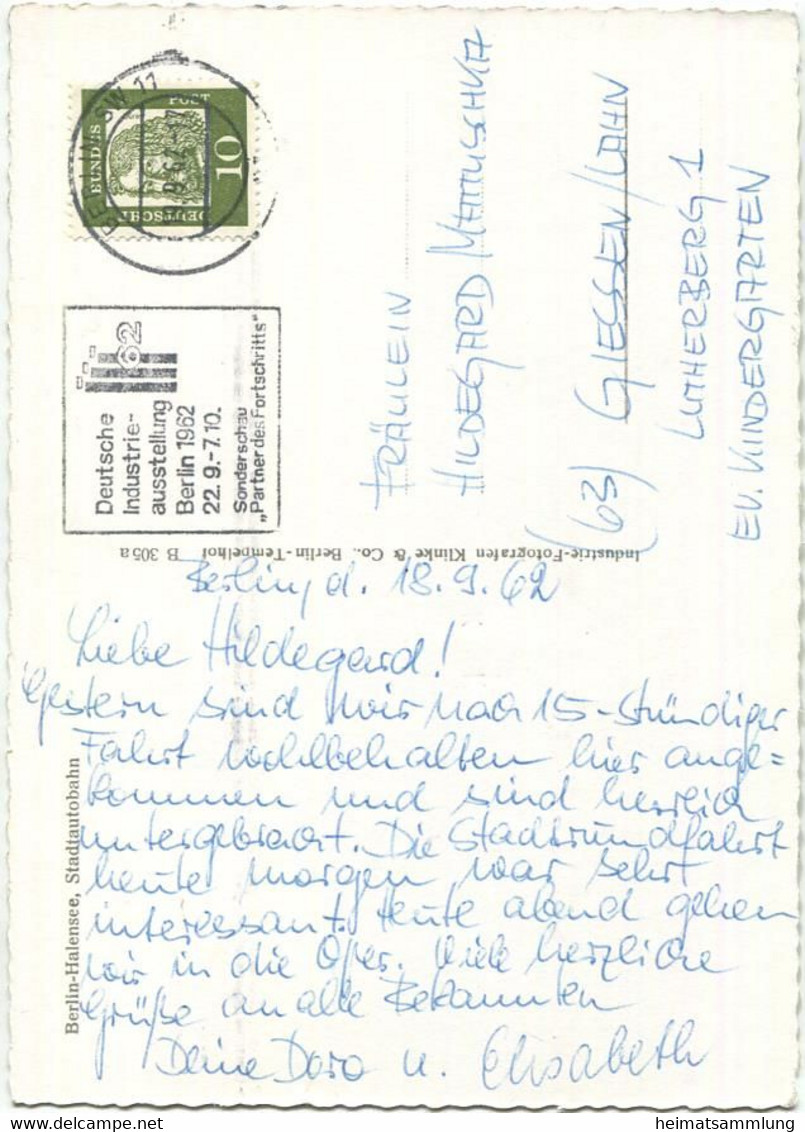 BERLIN SW 11
DEUTSCHE BUNDESPOST
10
62
Deutsche
Industrie-
ausstellung
Berlin 1962
22.9.-7.10.
Sonderschau
„Partner des Fortschritts"
FRÄULEIN
HILDEGARD MATTUSCHKA
(63) GIESSEN/LAHN
LUTHERBERG 1
EV. KINDERGARTEN
Industrie-Fotografen Klinke & Co., Berlin-Tempelhof B 305a
Berlin, d. 18.9.62
Liebe Hildegard!
Gestern sind wir nach 15-stündiger
Fahrt wohlbehalten hier ange=
kommen und sind herrlich
untergebracht. Die Stadtrundfahrt
heute morgen war sehr
interessant. Heute abend gehen
wir in die Oper. Viele herzliche
Grüße an alle Bekannten
Deine Dora u. Elisabeth
Berlin-Halensee, Stadtautobahn
heimatsammlung.com